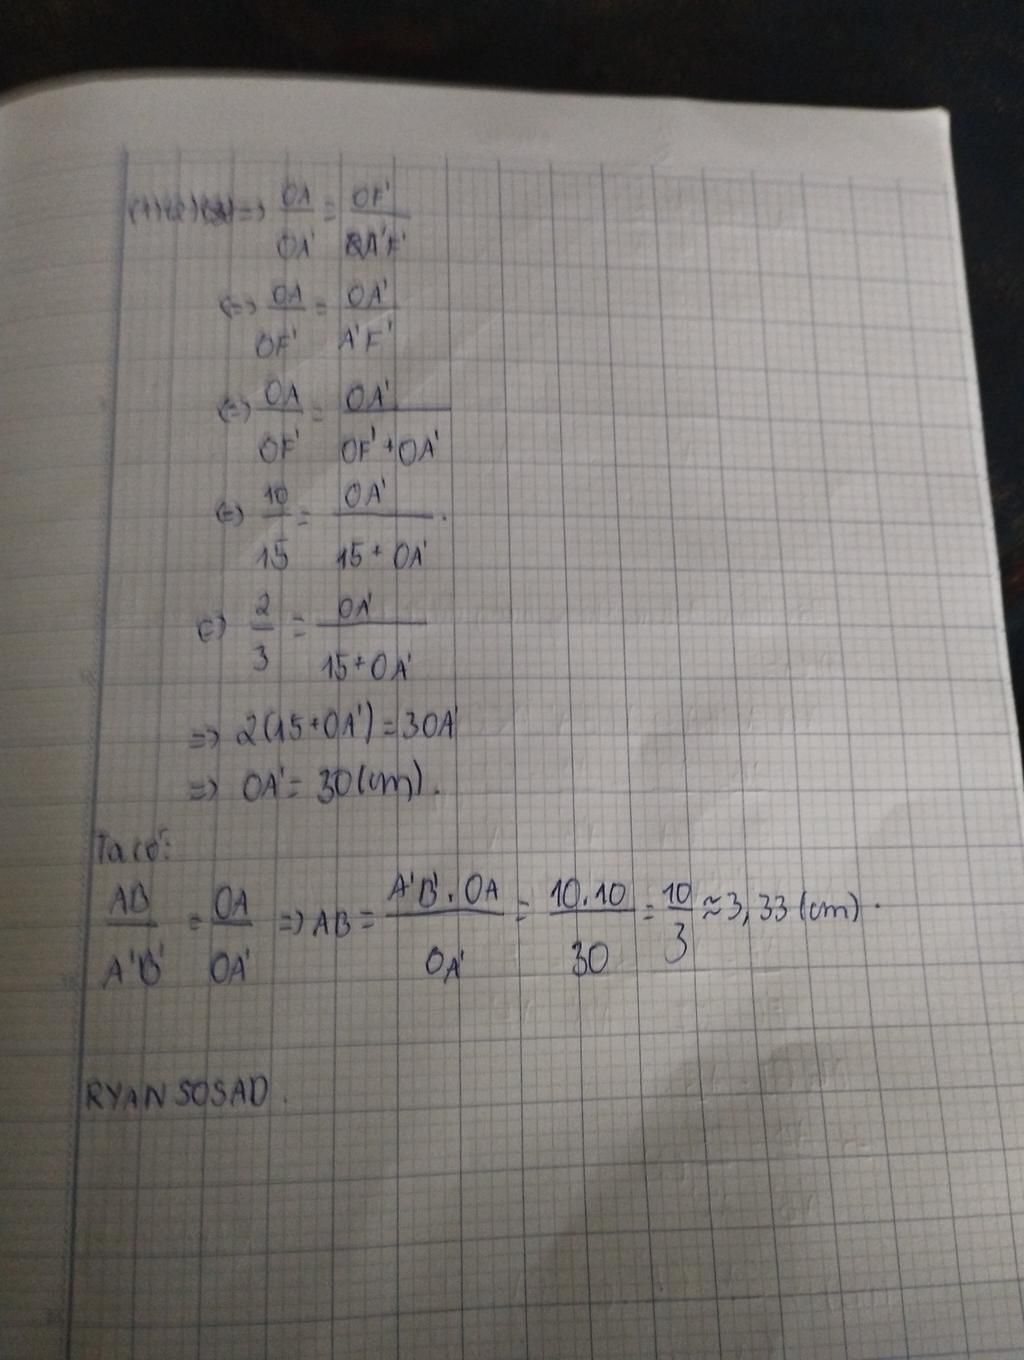 (1)(2)(3) => OA/OA' = OF'/A'F'
<=> OA/OF' = OA'/A'F'
<=> OA/OF' = OA'/OF'+OA'
<=> 10/15 = OA'/15+OA'.
<=> 2/3 = OA'/15+OA'
=> 2(15+OA') = 3OA'
=> OA' = 30(cm).
Ta có:
AB/A'B' = OA/OA' => AB = A'B'.OA/OA' = 10.10/30 = 10/3 ≈ 3,33(cm).
RYAN SOSAD.